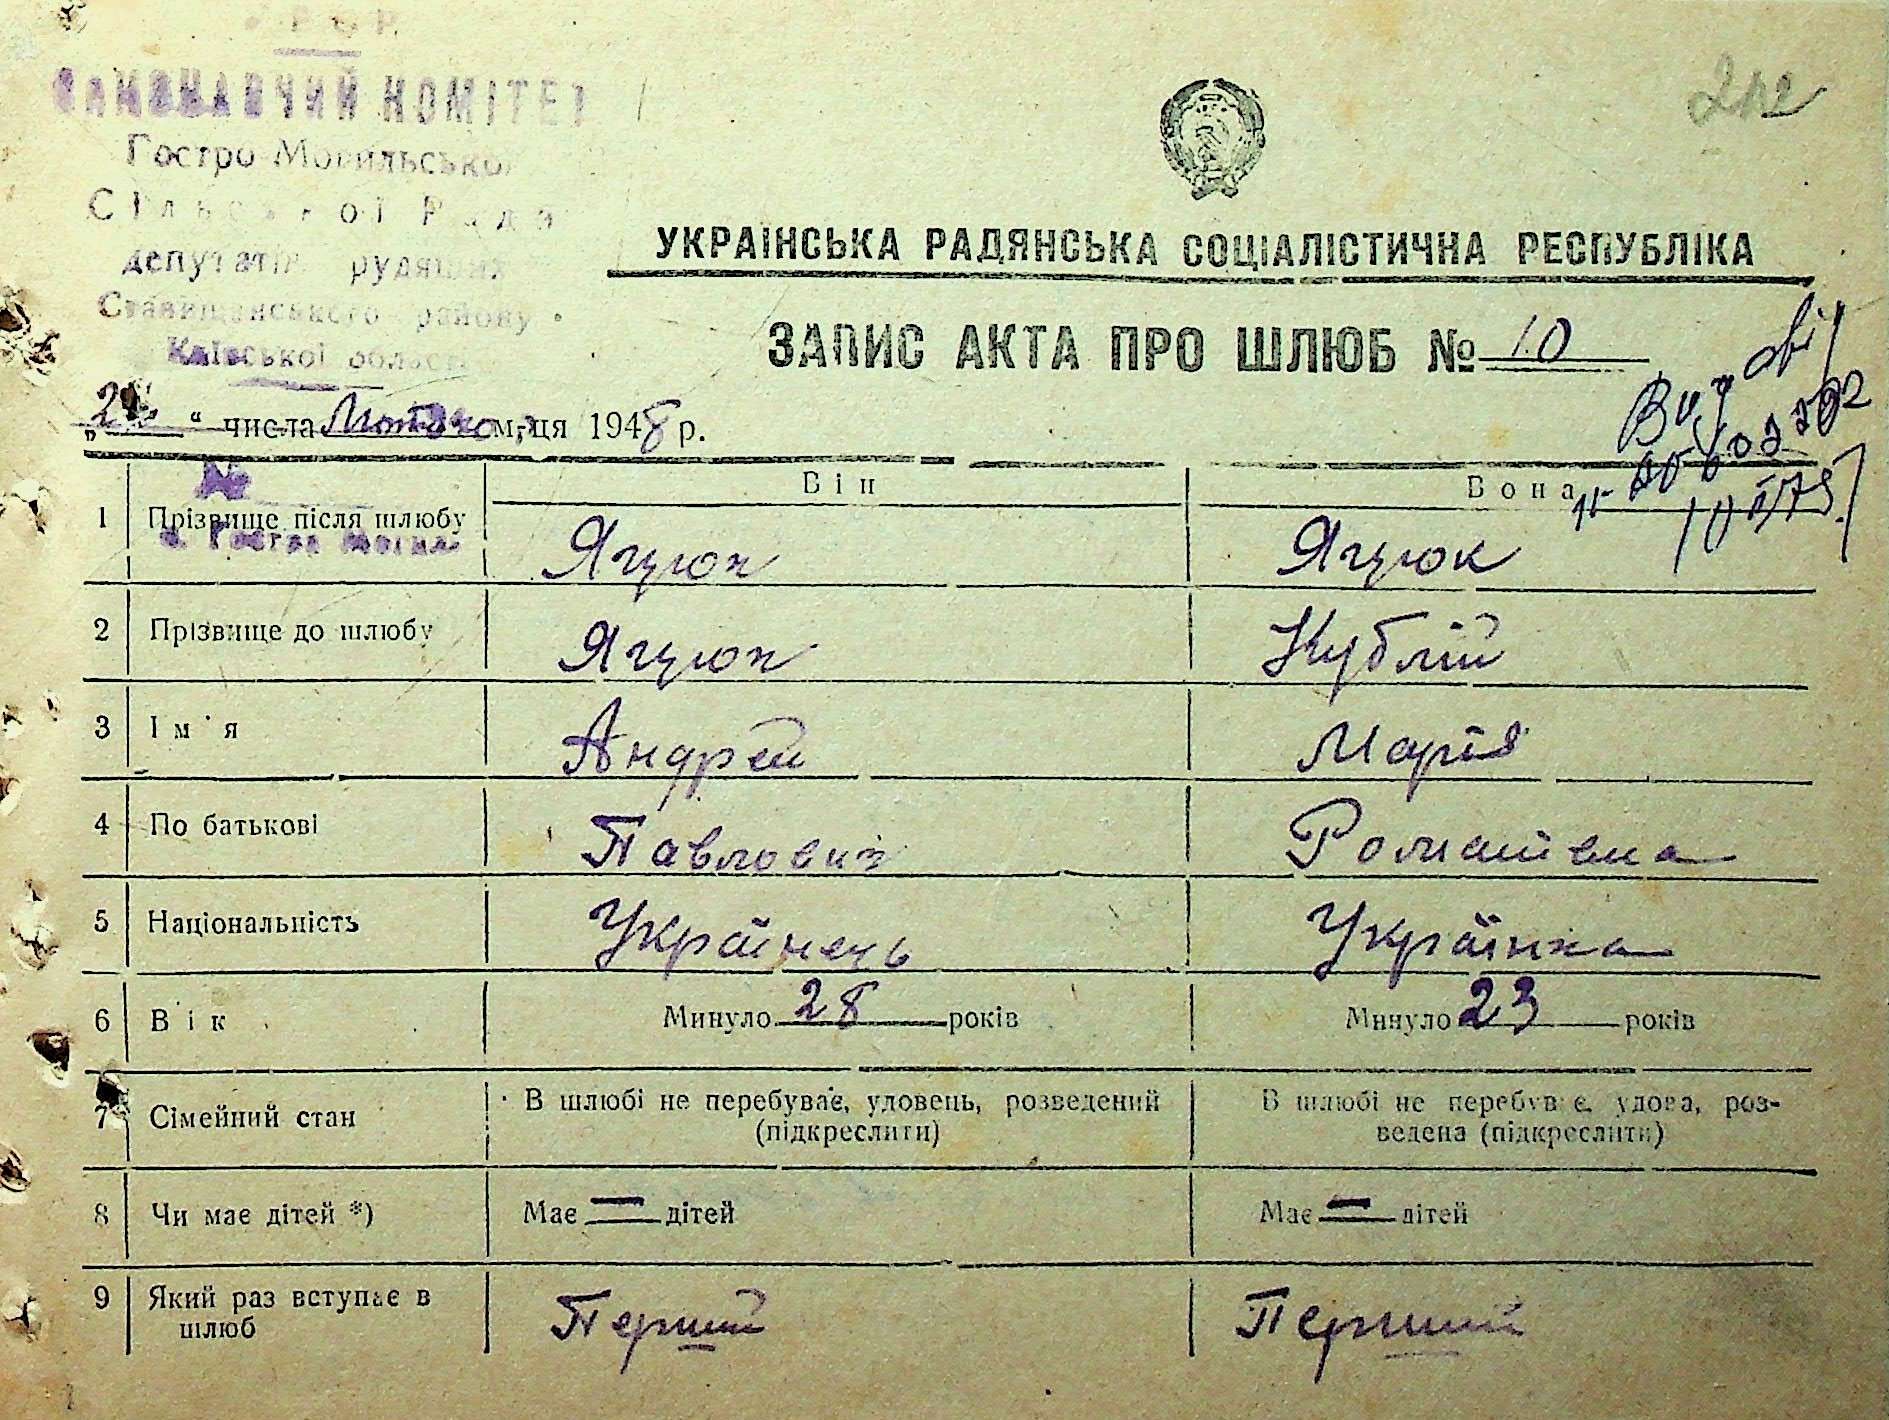 ВИКОНАВЧИЙ КОМІТЕТ
Гостро-Могильської
Сільської Ради
депутатів трудящих
Ставищанського району
Київської області
УКРАЇНСЬКА РАДЯНСЬКА СОЦІАЛІСТИЧНА РЕСПУБЛІКА
ЗАПИС АКТА ПРО ШЛЮБ № 10
„ “ числа Лютого м-ця 1948 р.
№
с. Гостра Могила
Він Вона
1 Прізвище після шлюбу Ягуюк Ягуюк
2 Прізвище до шлюбу Ягуюк Кублій
3 Ім'я Андрей Марія
4 По батькові Павлович Романівна
5 Національність Українець Українка
6 Вік Минуло 28 років Минуло 23 років
7 Сімейний стан В шлюбі не перебуває, уловець, розведений В шлюбі не перебуває, удова, роз-
(підкреслити) ведена (підкреслити)
8 Чи має дітей *) Має — дітей Має — дітей
9 Який раз вступає в Перший Перший
шлюб